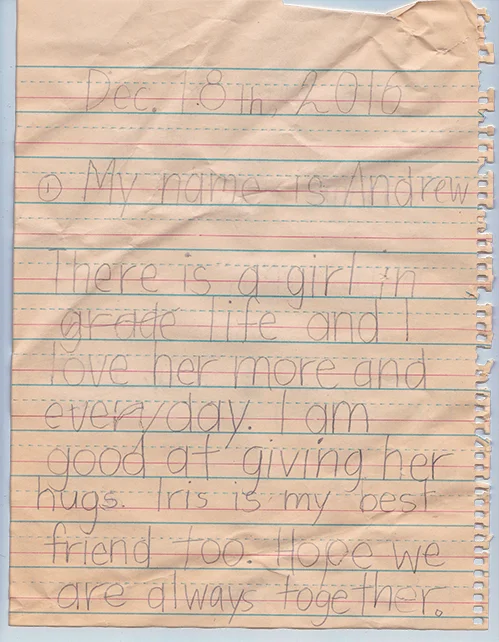 Dec. 18th, 2016
① My name is Andrew
There is a girl in
grade life and I
love her more and
everyday. I am
good at giving her
hugs. Iris is my best
friend too. Hope we
are always together.